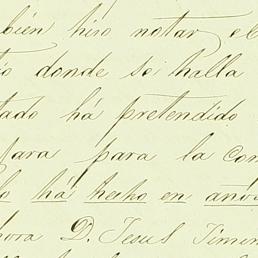 bien hiso notar el
donde se halla
tado há pretendido
para para la con
lo há hecho en
hora D. Jesus Ximen